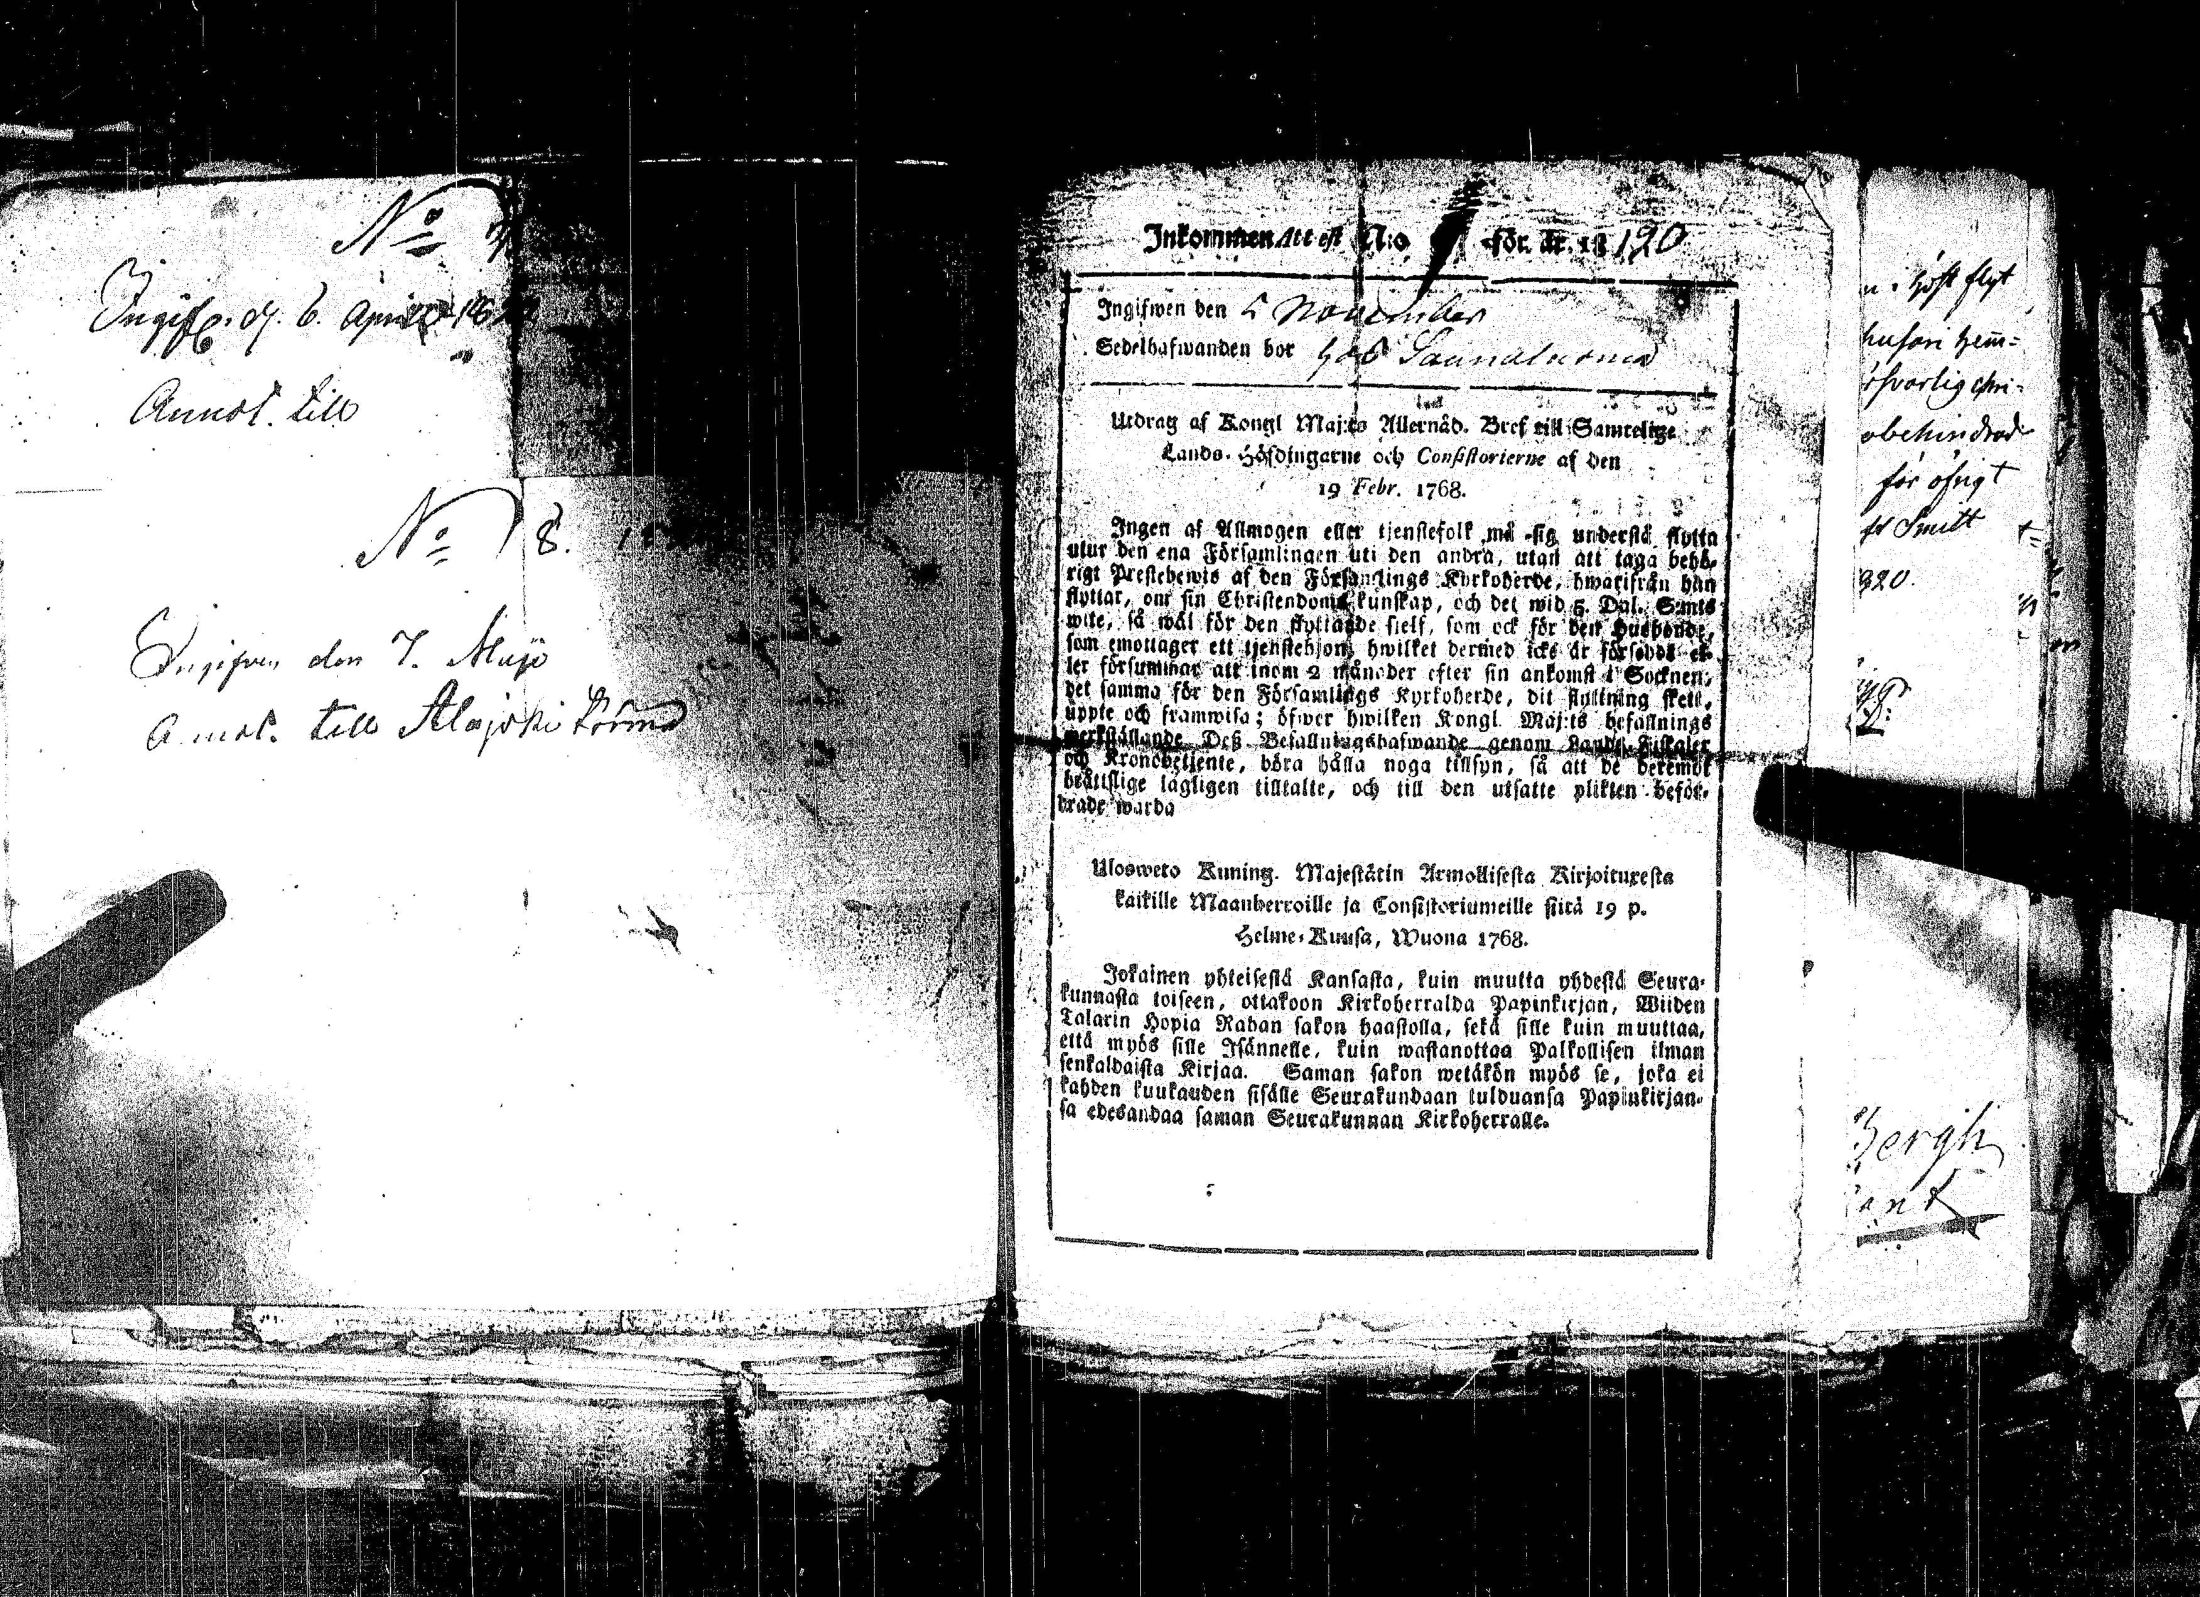 No 7
Ingifv. d. 6. April
Annot. till
No 8.
Ingifven den 7. Maji
Annot. till Alajoki
Inkommen Attest N:o 9 för år 18 120
Ingifwen den 5 November
Sedelhafwanden bor hos
Utdrag af Kongl Maj:ts Allernåd. Bref till Samtelige
Lands-Höfdingarne och Consistorierne af den
19 Febr. 1768.
Ingen af Allmogen eller tjenstefolk må sig understå flytta
utur den ena Församlingen uti den andra, utan att taga behö-
rigt Prestebewis af den Församlings Kyrkoherde, hwarifrån han
flyttar, om sin Christendoms kunskap, och det wid 5. Dal. S:mts
wite, så wäl för den flyttande sielf, som ock för den Husbonde,
som emottager ett tjenstehjon, hwilket dermed icke är försedt el-
ler försummar att inom 2 månader efter sin ankomst i Socknen,
det samma för den Församlings Kyrkoherde, dit flyttning skett,
uppte och framwisa; öfwer hwilken Kongl. Maj:ts befallnings
werkställande Deß Befallningshafwande genom Lands-Fiskaler
och Kronobetjente, böra hålla noga tillsyn, så att de deremot
bråttslige lagligen tilltalte, och till den utsatte plikten beför-
drade warda
Ulosweto Kuning. Majestätin Armollisesta Kirjoituxesta
kaikille Maanherroille ja Consistoriumeille siitä 19 p.
Helme-Kuusa, Wuona 1768.
Jokainen yhteisestä Kansasta, kuin muutta yhdestä Seura-
kunnasta toiseen, ottakoon Kirkoherralda Papinkirjan, Wiiden
Talarin Hopia Rahan sakon haastolla, sekä sille kuin muuttaa,
että myös sille Isännelle, kuin wastanottaa Palkollisen ilman
senkaldaista Kirjaa. Saman sakon wetäkön myös se, joka ei
kahden kuukauden sisälle Seurakundaan tulduansa Papinkirjan-
sa edesandaa saman Seurakunnan Kirkoherralle.
höst flyt
obehindrad
för öfrigt
820.
Bergh